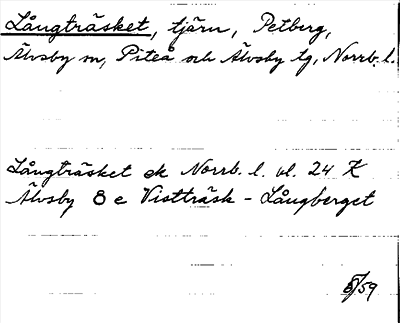 Långträsket, tjärn, Petberg,
Älvsby sn, Piteå och Älvsby tg, Norrb. l.
Långträsket ek Norrb. l. bl. 24 K
Älvsby 8 e Vistträsk - Långberget
8/59